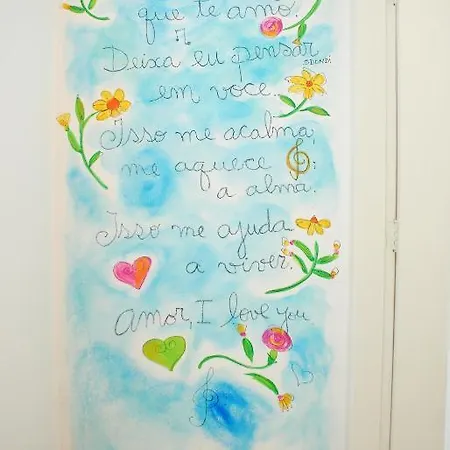 que te amo.
Deixa eu pensar
em você.
Isso me acalma,
me aquece
a alma.
Isso me ajuda
a viver.
amor, I love you